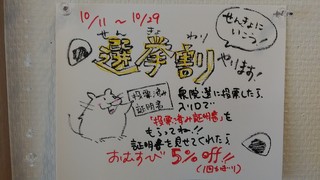 10/11 ~ 10/29
せんきょに
いこう!
せんきょ わり
選挙割りやります!
投票済み
証明書
衆院選に投票したら
「投票済み証明書」を
もらってね!!
証明書を見せてくれたら
おむすび5%off!!
(1回きり)